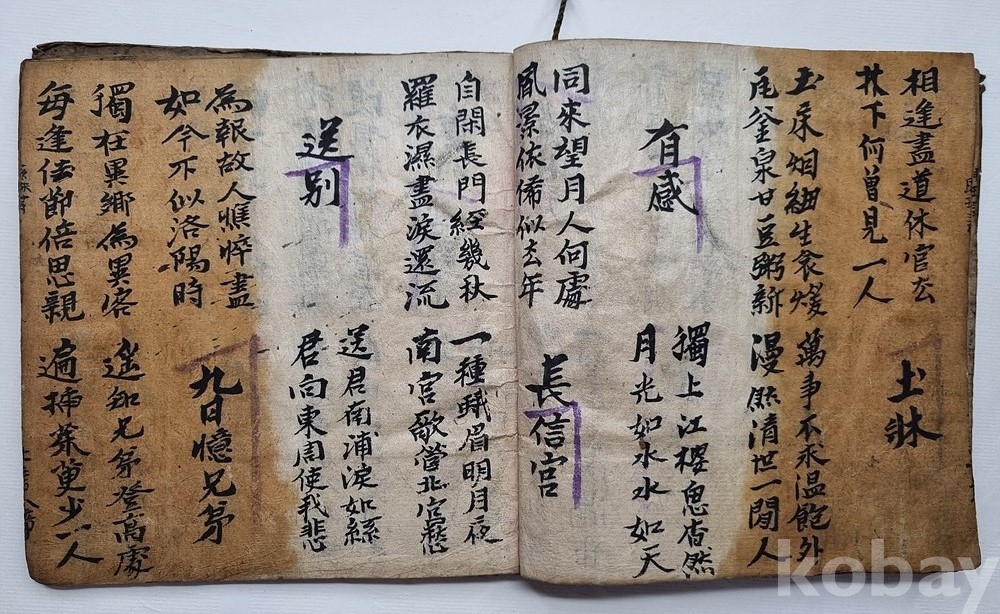 相逢盡道休官去
林下何曾見一人
土牀
土床烟細生衾煖
瓦釜泉甘豆粥新
萬事不求溫飽外
漫然清世一閒人
有感
獨上江樓思杳然
月光如水水如天
同來望月人何處
風景依俙似去年
長信宮
自閑長門經幾秋
羅衣濕盡淚還流
一種蛾眉明月夜
南宮歌管北宮愁
送別
送君南浦淚如絲
君向東周使我悲
為報故人憔悴盡
如今不似洛陽時
九日憶兄弟
獨在異鄉為異客
每逢佳節倍思親
遙知兄弟登高處
遍揷茱萸少一人
kobay